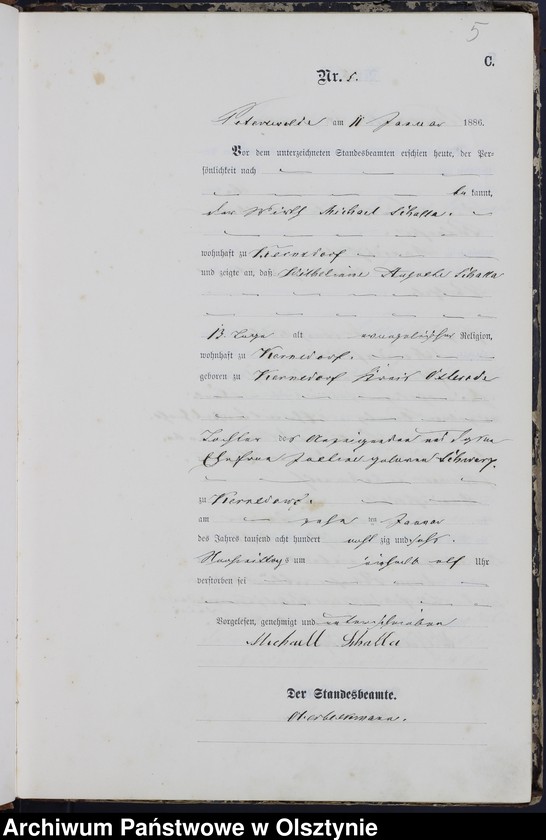 5
C.
Nr. 5.
Peterswalde am 11 Januar 1886.
Vor dem unterzeichneten Standesbeamten erschien heute, der Per-
sönlichkeit nach
be kannt,
der Wirth Michael Schalla.
wohnhaft zu Kernsdorf
und zeigte an, daß Wilhelmine Auguste Schalla
13 Tage alt evangelischer Religion,
wohnhaft zu Kernsdorf.
geboren zu Kernsdorf Kreis Osterode
Tochter des Anzeigenden und seiner
Ehefrau geborenen
zu Kernsdorf.
am zehn ten Januar
des Jahres tausend acht hundert acht zig und sechs.
Nachmittags um elf Uhr
verstorben sei
Vorgelesen, genehmigt und unterschrieben
Michael Schalla
Der Standesbeamte.
Archiwum Państwowe w Olsztynie